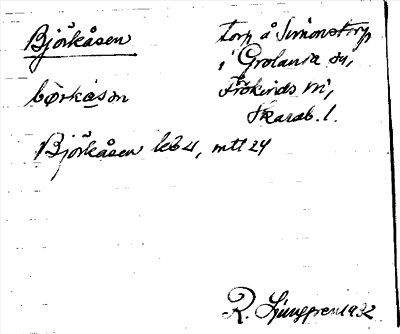 Björkåsen torp å Simonstorp
i Grolanda sn,
börkåsn Frökinds hd,
Skarab. l.
Björkåsen kb 4, mtl 24
R. Ljunggren 1932